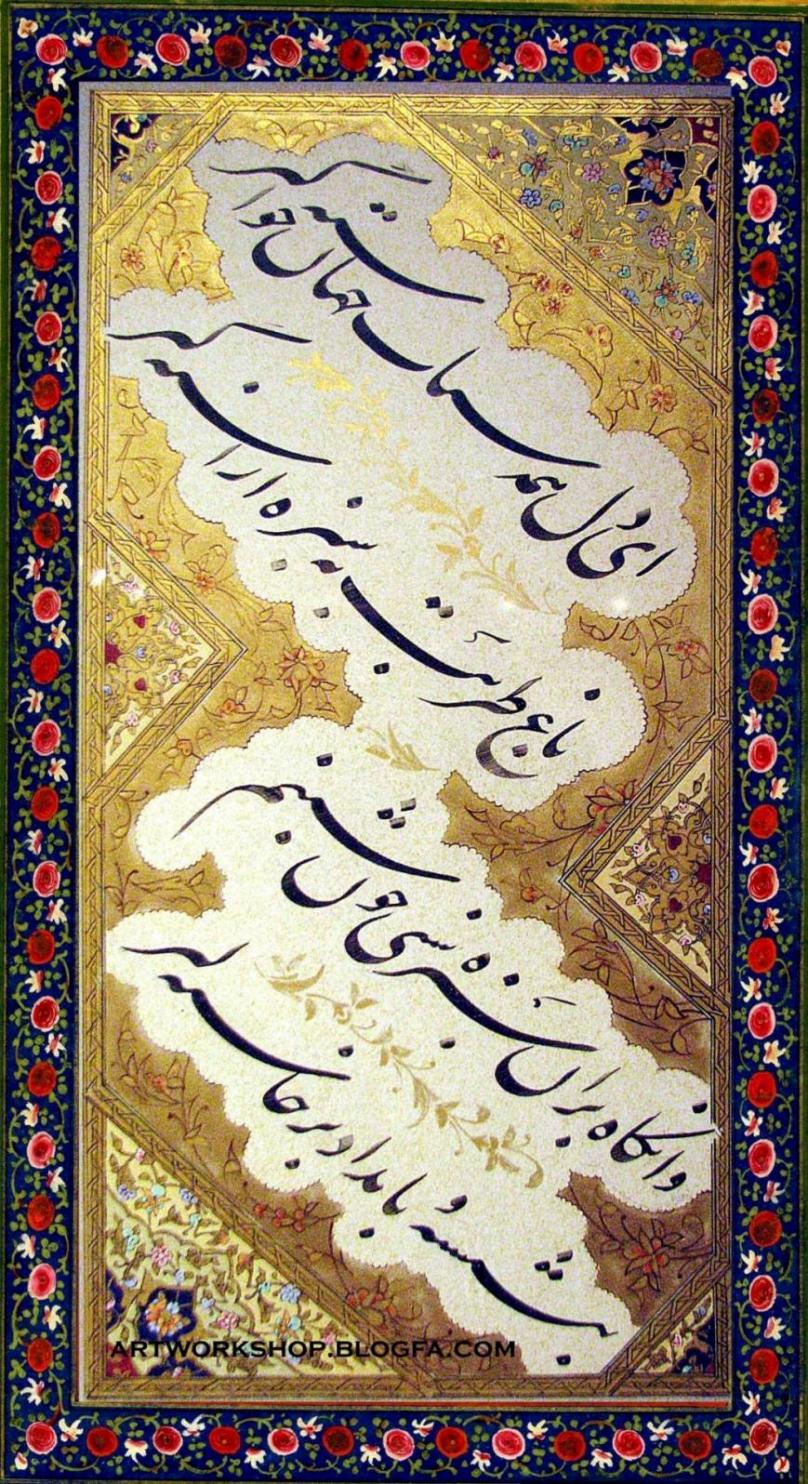 ای دل همه اسباب جهان خواسته گیر
باغ طربت به سبزه اراسته گیر
وانگاه بران سبزه شبی چون شبنم
بنشسته و بامداد برخاسته گیر
ARTWORKSHOP.BLOGFA.COM